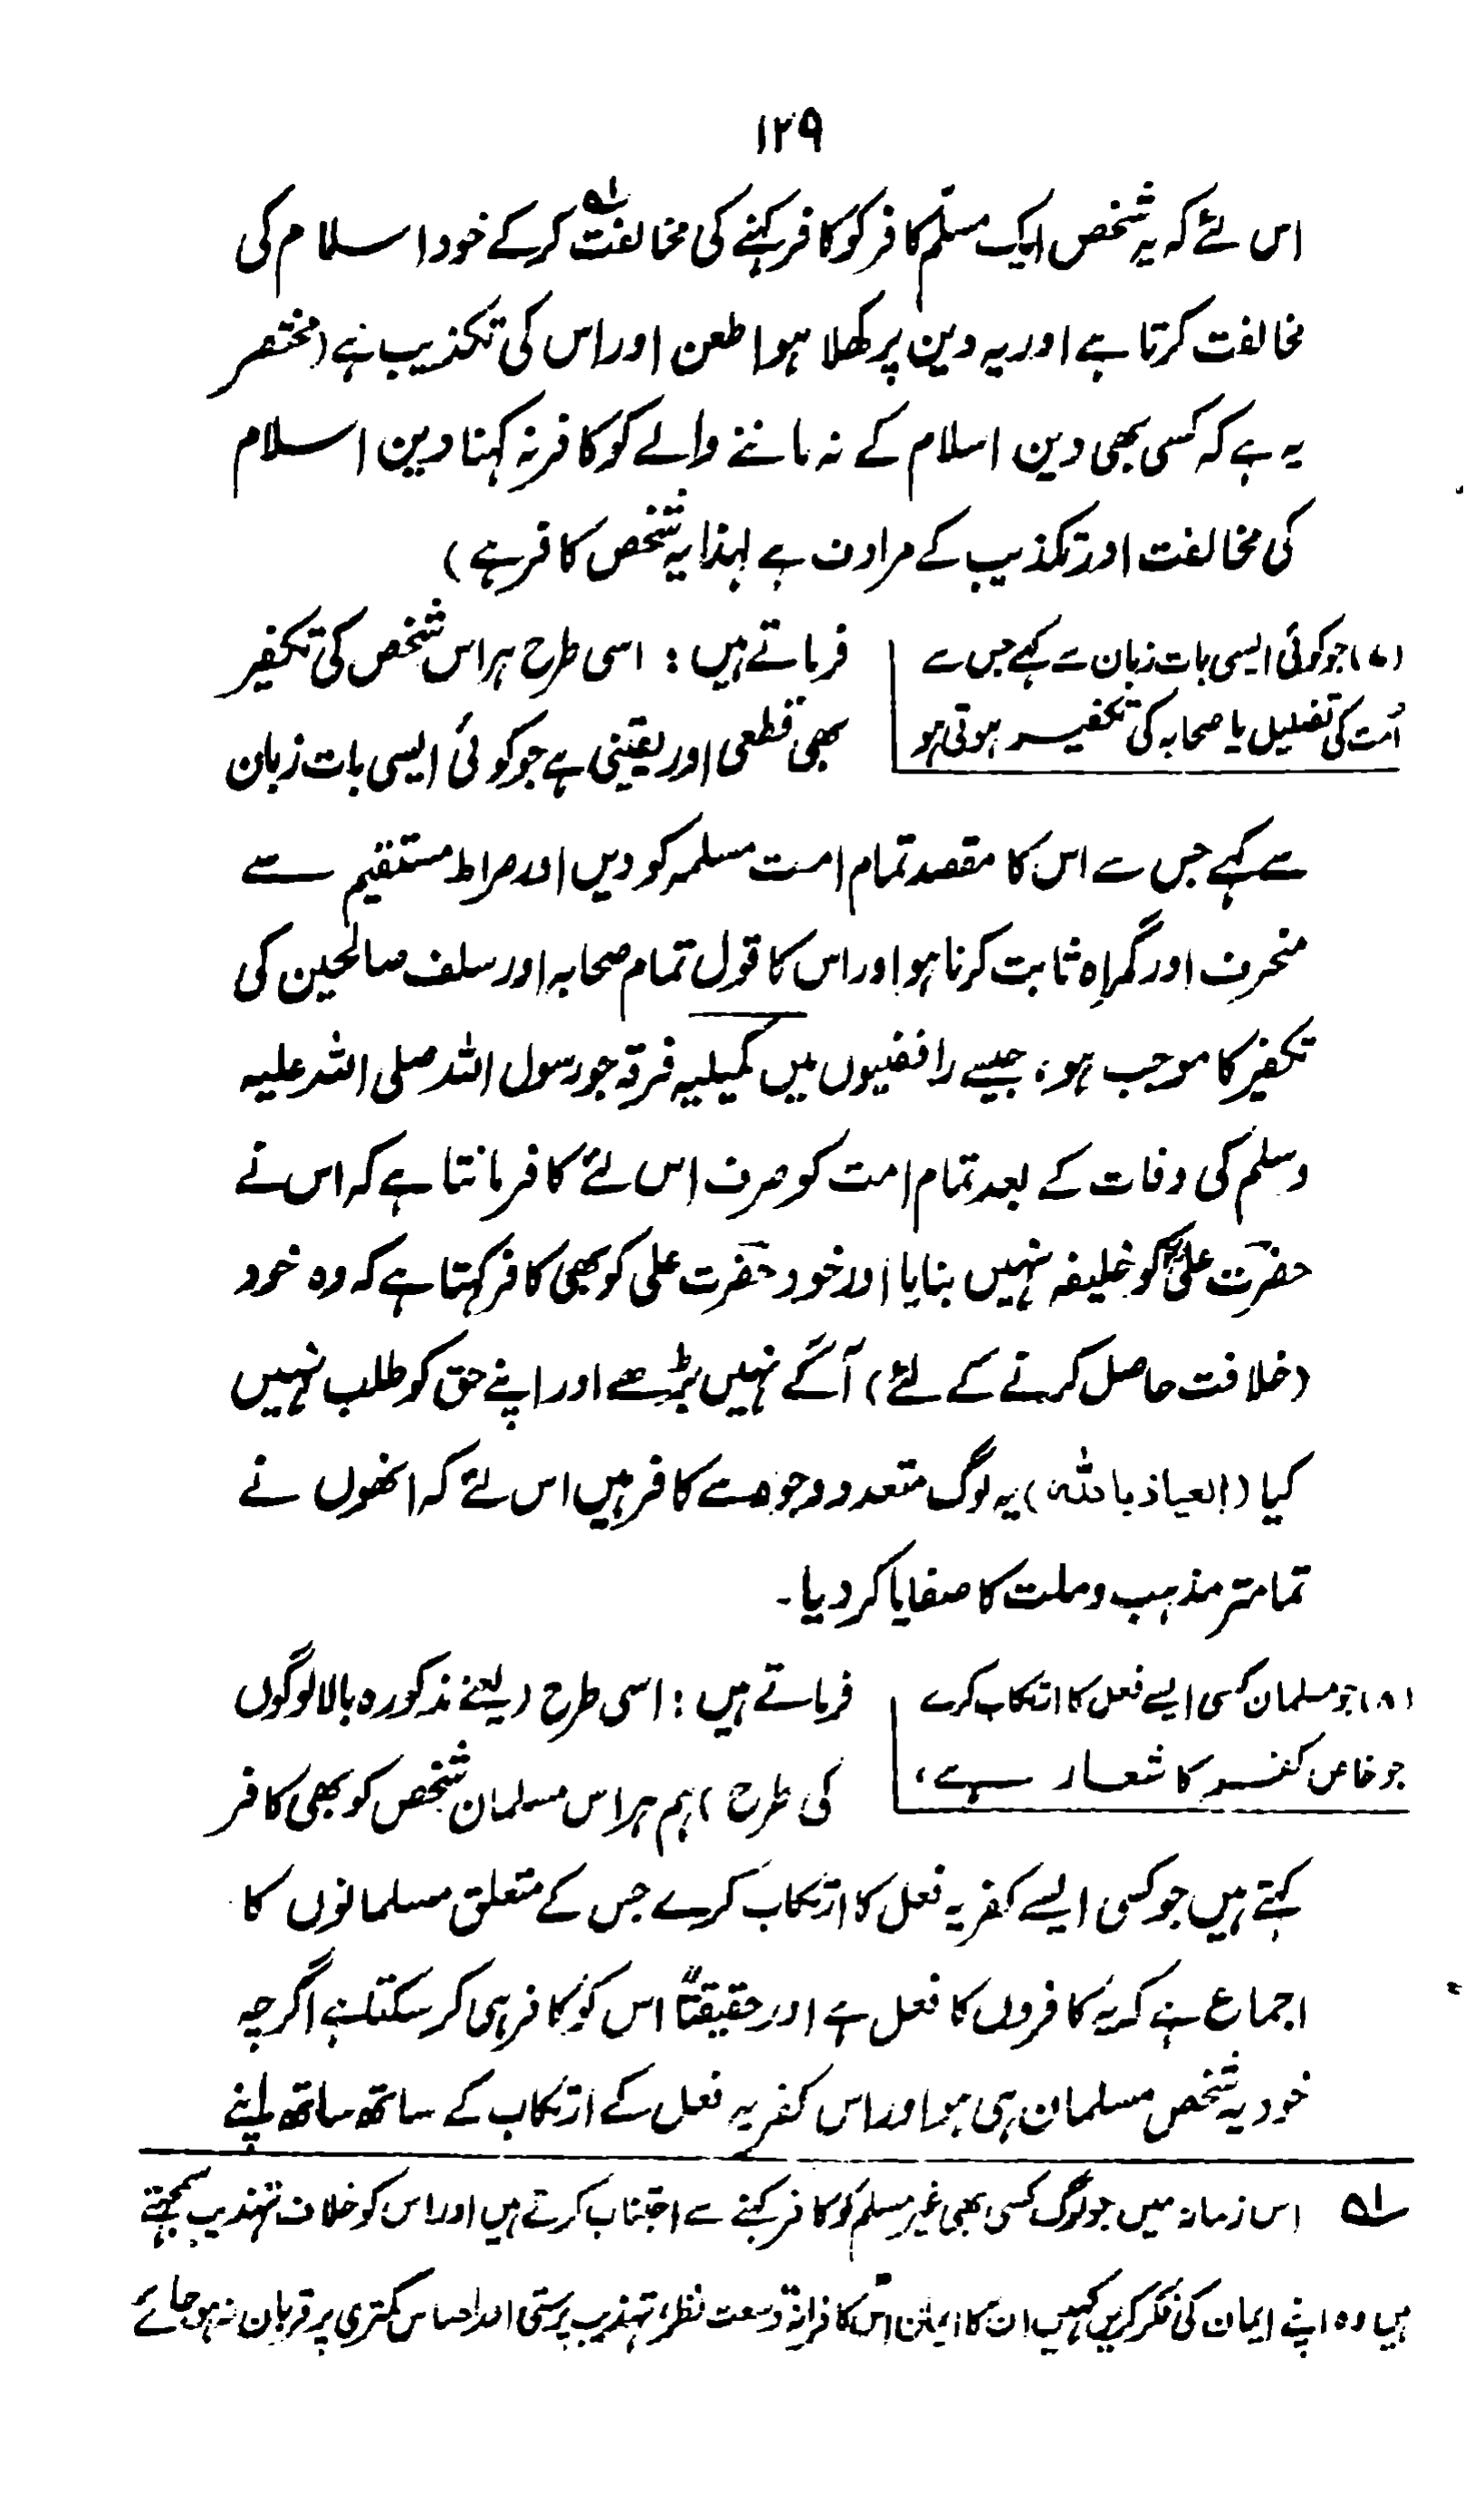 ۱۲۹
اس لئے کہ یہ شخص ایک مسلّم کافر کو کافر کہنے کی مخالفت ؎۱ کرکے خود اسلام کی
مخالفت کرتا ہے اور یہ دین پر کھلا ہوا طعن اور اس کی تکذیب ہے (مختصر
یہ ہے کہ کسی بھی دین اسلام کے نہ ماننے والے کو کافر نہ کہنا دین اسلام
کی مخالفت اور تکذیب کے مرادف ہے لہذا یہ شخص کافر ہے)
(۷) جو کوئی ایسی بات زبان سے کہے جس سے
اُمت کی تضلیل یا صحابہ کی تکفیر ہوتی ہو
فرماتے ہیں: اسی طرح ہر اس شخص کی تکفیر
بھی قطعی اور یقینی ہے جو کوئی ایسی بات زبان
سے کہے جس سے اس کا مقصد تمام امت مسلمہ کو دین اور صراط مستقیم سے
منحرف اور گمراہ ثابت کرنا ہو اور اس کا قول تمام صحابہ اور سلف صالحین کی
تکفیر کا موجب ہو، جیسے رافضیوں میں کمیلیہ فرقہ جو رسول اللہ صلی اللہ علیہ
وسلم کی وفات کے بعد تمام امت کو صرف اس لئے کافر مانتا ہے کہ اس نے
حضرت علیؓ کو خلیفہ نہیں بنایا اور خود حضرت علی کو بھی کافر کہتا ہے کہ وہ خود
(خلافت حاصل کرنے کے لئے) آگے نہیں بڑھے اور اپنے حق کو طلب نہیں
کیا (العیاذ باللہ) یہ لوگ متعدد وجوہ سے کافر ہیں اس لئے کہ انھوں نے
تمام تر مذہب و ملت کا صفایا کر دیا۔
(۸) جو مسلمان کسی ایسے فعل کا ارتکاب کرے
جو خاص کفر کا شعار ہے،
فرماتے ہیں: اسی طرح (یعنی مذکورہ بالا لوگوں
کی طرح) ہم ہر اس مسلمان شخص کو بھی کافر
کہتے ہیں جو کسی ایسے کفریہ فعل کا ارتکاب کرے جس کے متعلق مسلمانوں کا
اجماع ہے کہ یہ کافروں کا فعل ہے اور حقیقتاً اس کو کافر ہی کر سکتا ہے اگرچہ
خود یہ شخص مسلمان ہی ہو اور اس کفریہ فعل کے ارتکاب کے ساتھ ساتھ اپنے
؎۱ اس زمانہ میں جو لوگ کسی بھی غیر مسلم کو کافر کہنے سے اجتناب کرتے ہیں اور اس کو خلاف تہذیب سمجھتے
ہیں وہ اپنے ایمان کی فکر کریں کہیں ان کا ایمان اس کافرانہ وسعت نظر، تہذیب پرستی اور احساس کمتری پر قربان نہ ہو جائے